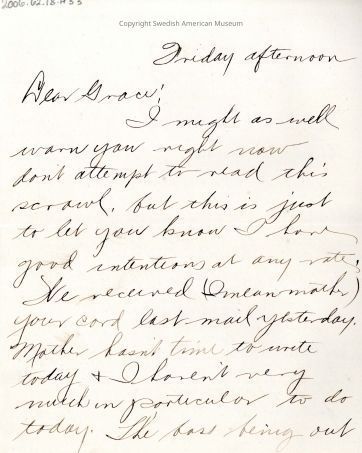 2006.62.18.H33
Copyright Swedish American Museum
Friday afternoon
Dear Grace!
I might as well
warn you right now
don't attempt to read this
scrawl, but this is just
to let you know I have
good intentions at any rate.
We received (I mean mother)
your card last mail yesterday.
Mother hasn't time to write
today & I haven't very
much in particular to do
today. The boss being out